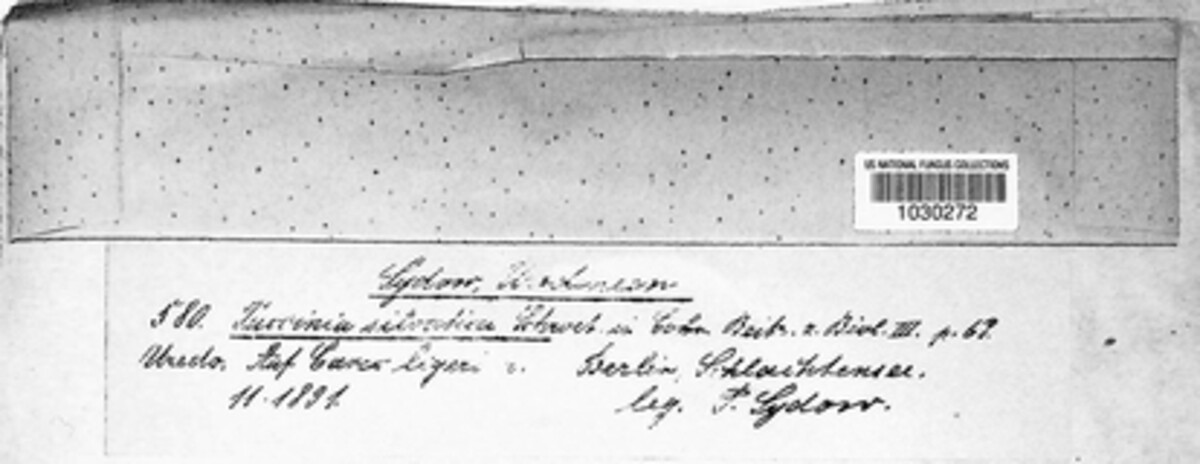 US NATIONAL FUNGUS COLLECTIONS
1030272
Sydow, Uredineen
580. Puccinia silvatica Schroet. in Cohn Beitr. z. Biol. III. p. 68.
Uredo. Auf Carex ligeri Berlin, Schlachtensee.
11.1891. leg. P. Sydow.